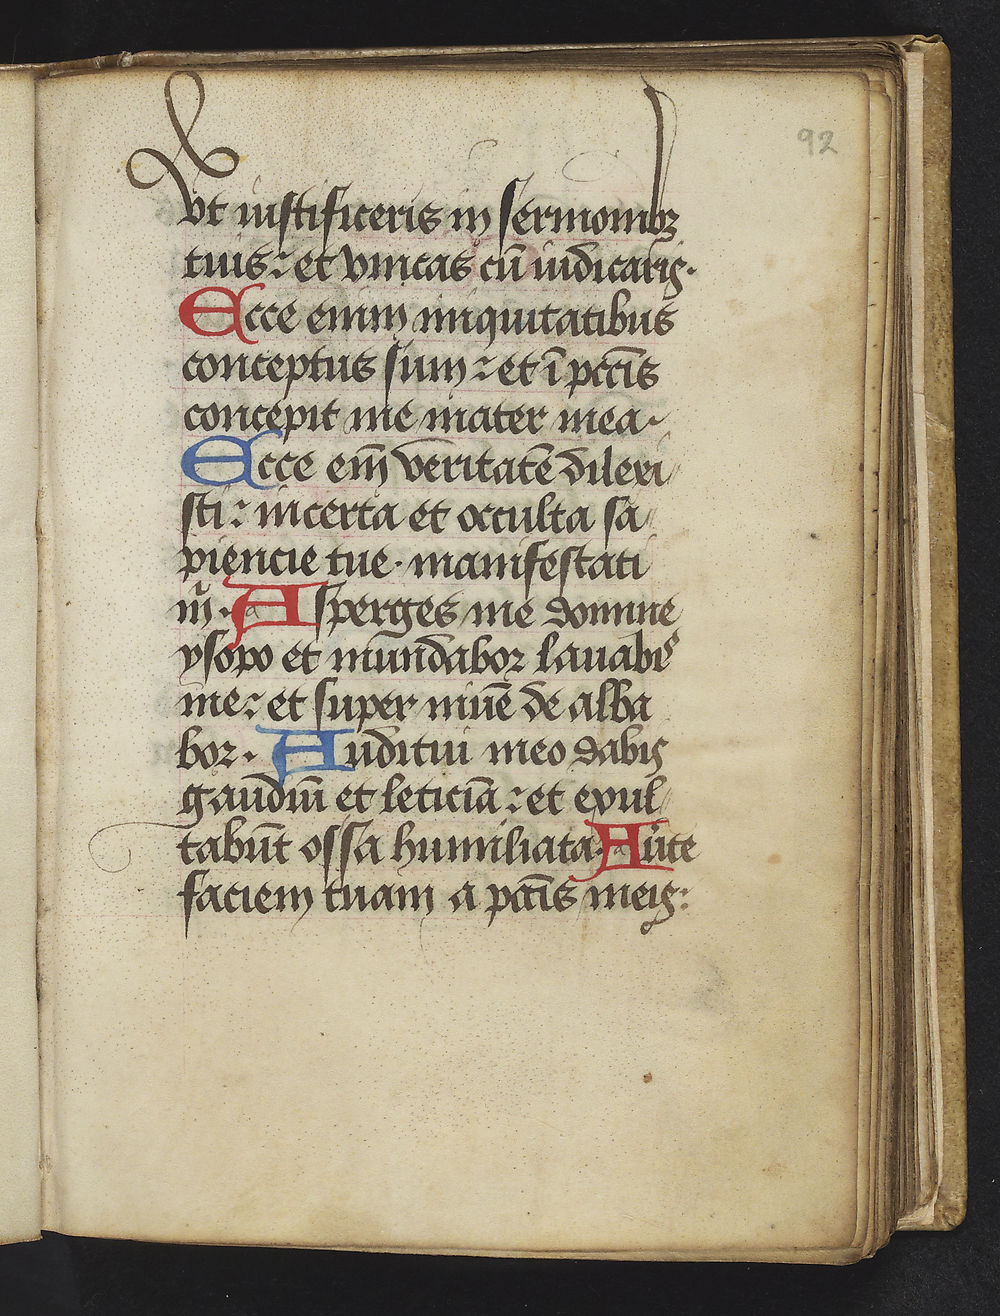 92
vt iustificeris in sermonibꝫ
tuis: et vincas cū iudicaris.
Ecce enim iniquitatibus
conceptus sum: et ī pctīs
concepit me mater mea
Ecce em̄ veritatē dilexi
sti: incerta et occulta sa
piencie tue. manifestati
m̄. Asperges me domine
ysopo et mūndaboꝛ lauabis
me: et super niuē de alba
boꝛ. Auditui meo dabis
gaudiū et leticiā: et exul
tabūt ossa humiliata. Aūte
faciem tuam a pctīs meis: